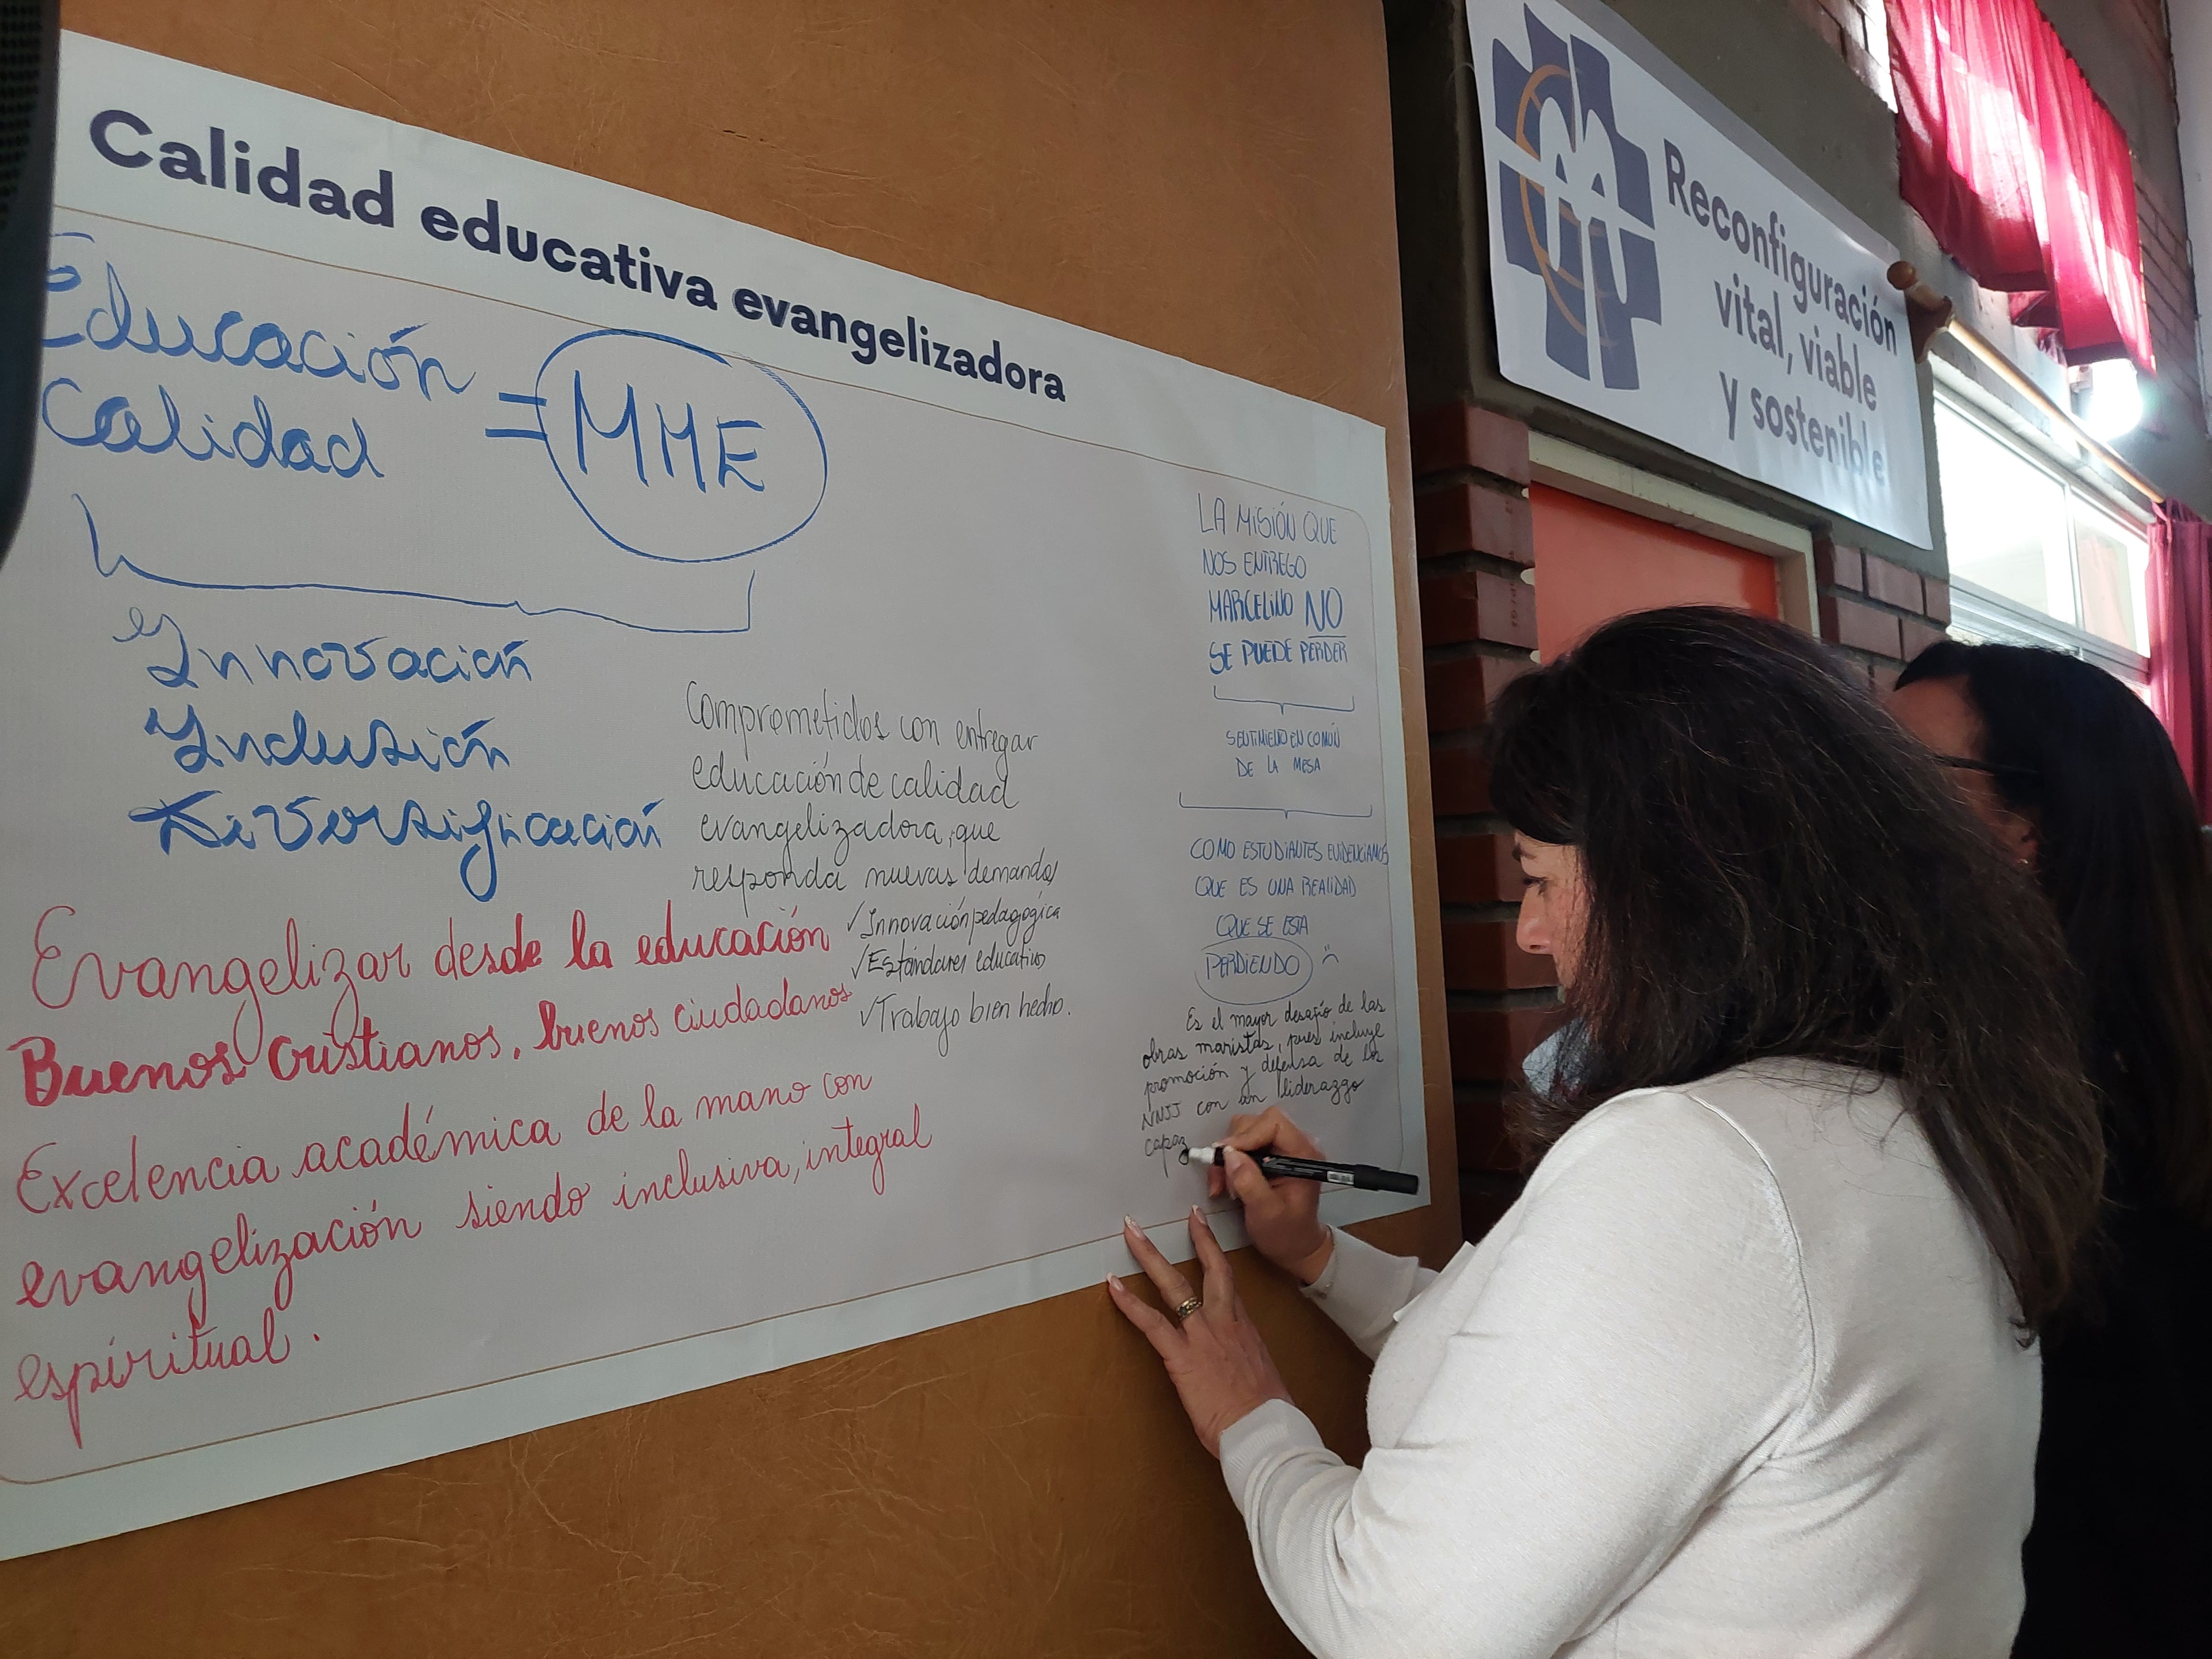 Calidad educativa evangelizadora
Educación
Calidad
= MME
es
Innovación
Inclusión
Diversificación
Evangelizar desde la educación
Buenos Cristianos, buenos ciudadanos
Excelencia académica de la mano con
evangelización siendo inclusiva, integral
espiritual.
Comprometidos con entregar
educación de calidad
evangelizadora, que
responda nuevas demandas
✓ Innovación pedagógica
✓ Estándares educativos
✓ Trabajo bien hecho.
LA MISIÓN QUE
NOS ENTREGO
MARCELINO NO
SE PUEDE PERDER
SENTIMIENTO EN COMÚN
DE LA MESA
COMO ESTUDIANTES EVIDENCIAMOS
QUE ES UNA REALIDAD
QUE SE ESTA
PERDIENDO :(
Es el mayor desafío de las
obras maristas, pues incluye
promoción y defensa de los
NNJJ con un liderazgo
capaz
Reconfiguración
vital, viable
y sostenible